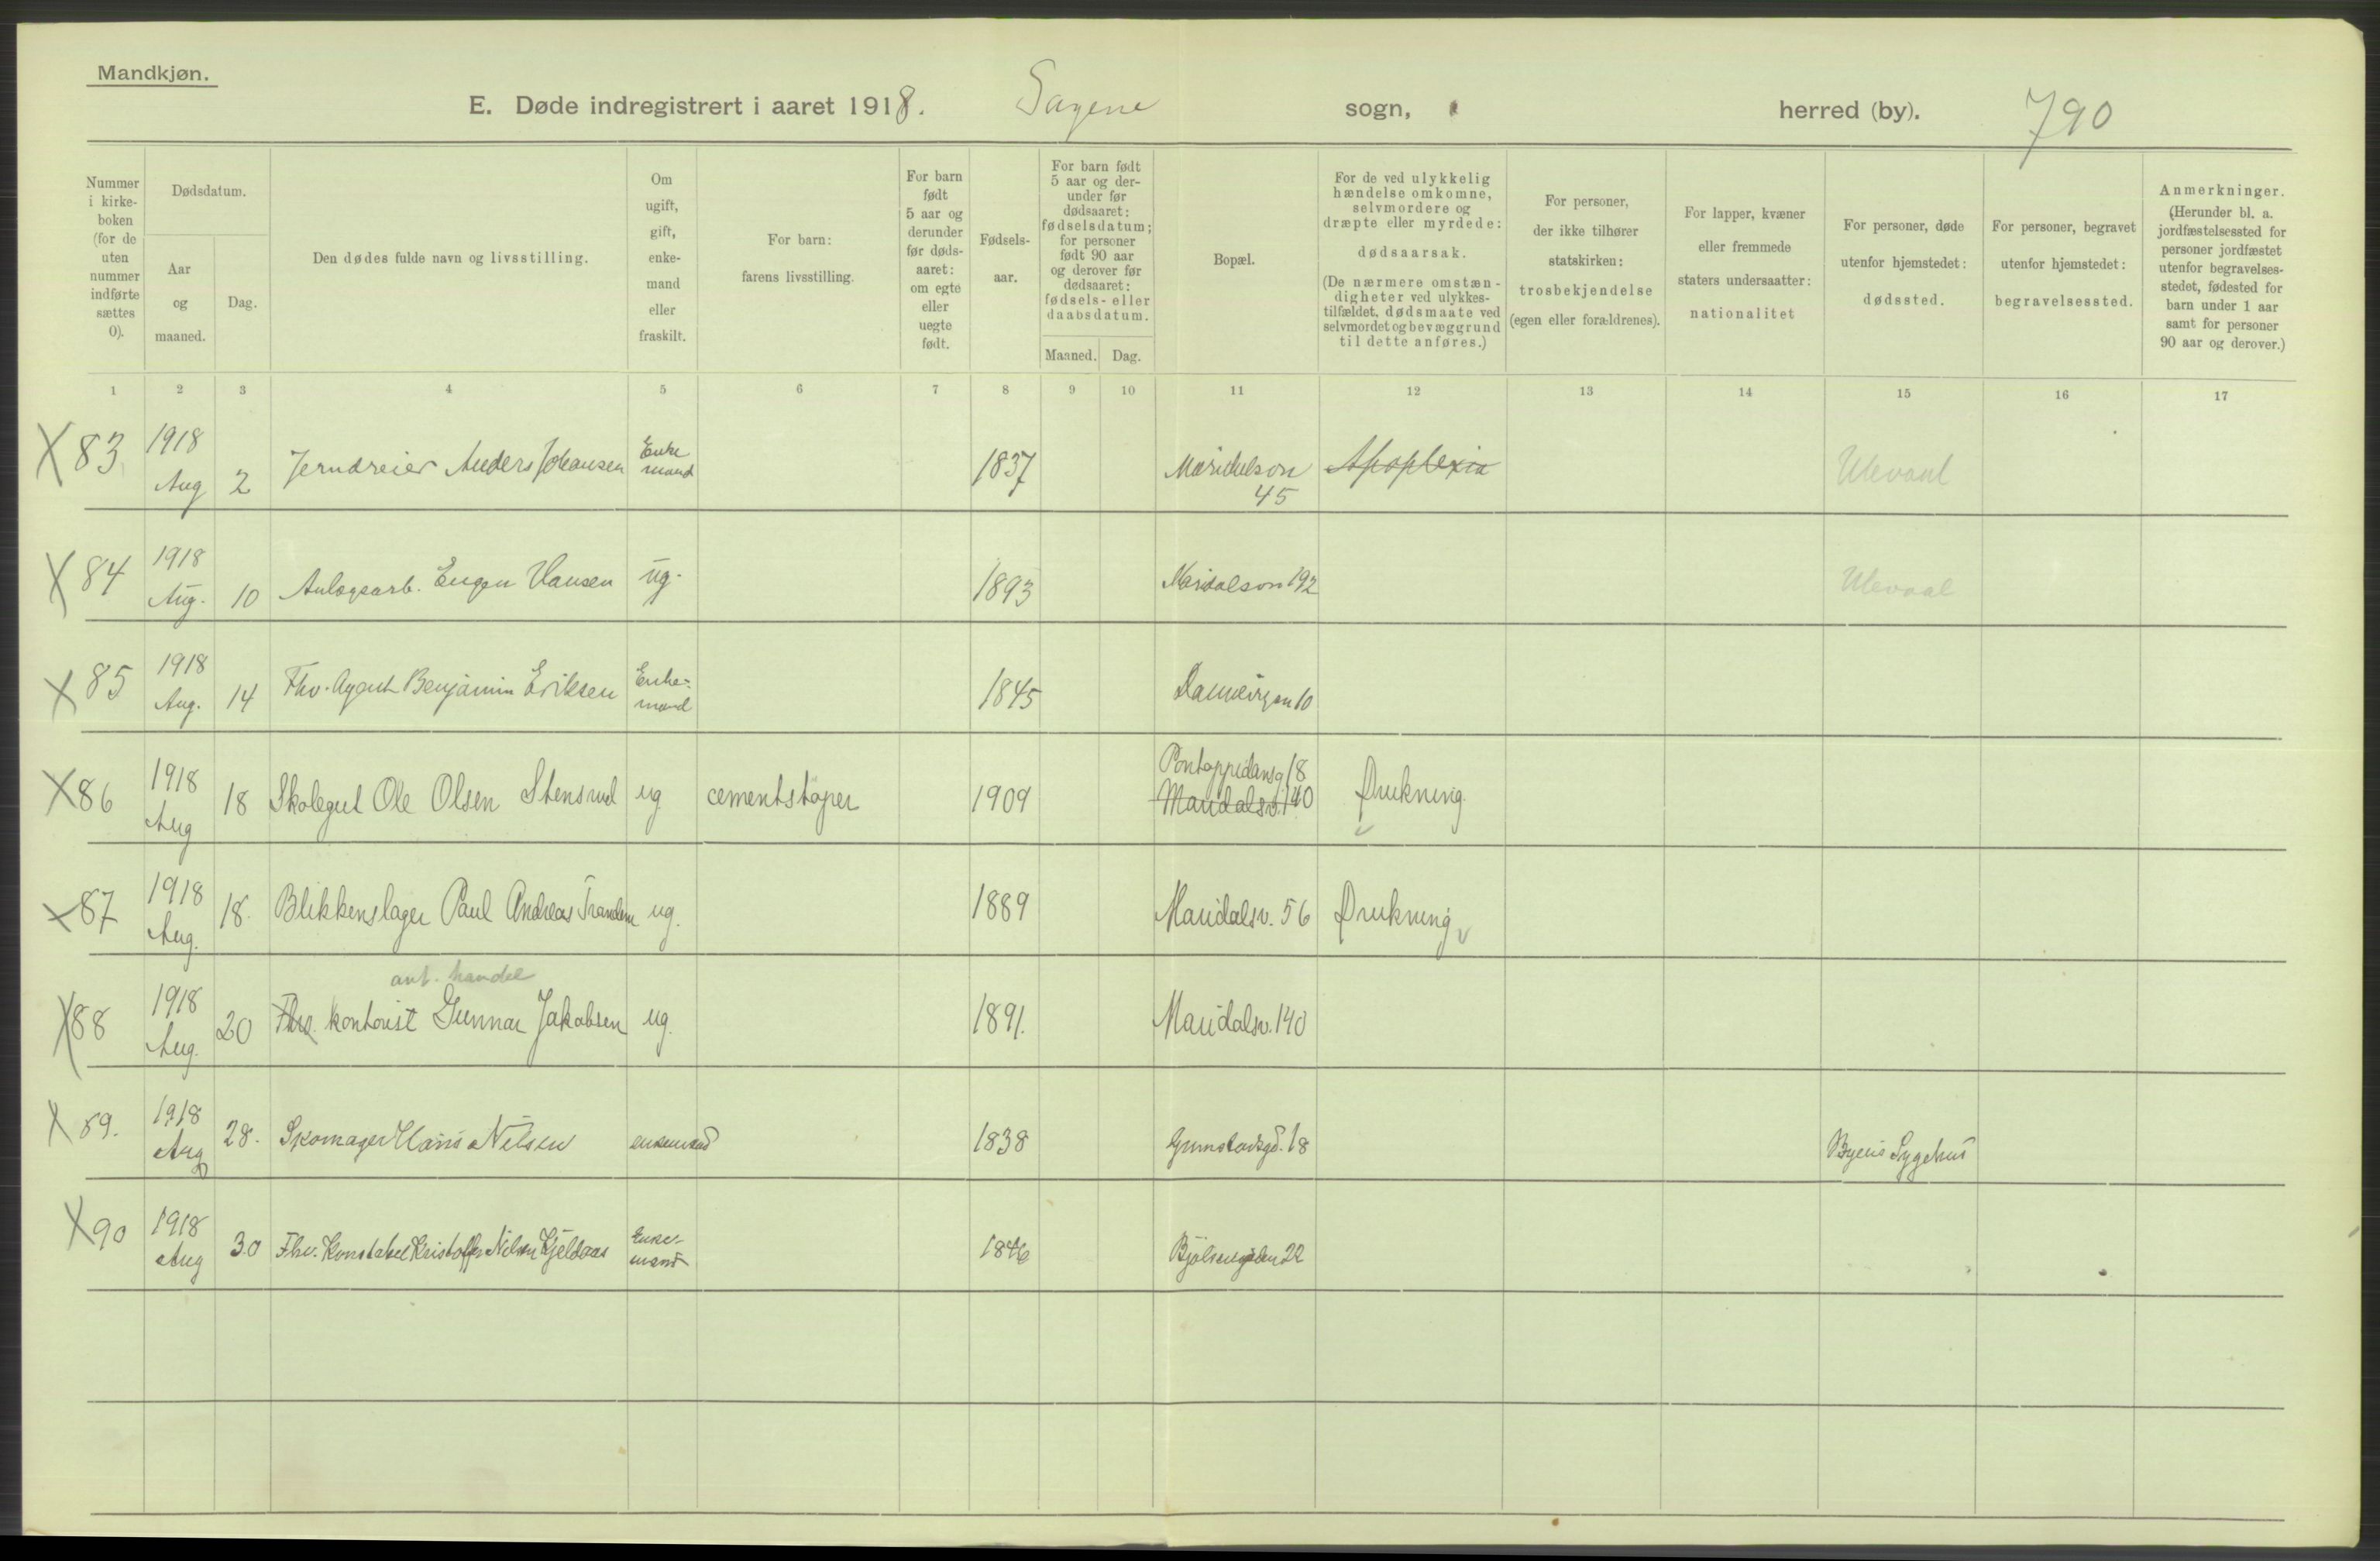 Mandkjøn.
E. Døde indregistrert i aaret 1918. Sagene sogn, herred (by). 790
Nummer i kirke-boken (for de uten nummer indførte sættes 0).
Dødsdatum.
Aar og maaned.
Dag.
Den dødes fulde navn og livsstilling.
Om ugift, gift, enke-mand eller fraskilt.
For barn: farens livsstilling.
For barn født 5 aar og derunder før døds-aaret: om egte eller uegte født.
Fødsels-aar.
For barn født 5 aar og der-under før dødsaaret: fødselsdatum; for personer født 90 aar og derover før dødsaaret: fødsels- eller daabsdatum.
Maaned. Dag.
Bopæl.
For de ved ulykkelig hændelse omkomne, selvmordere og dræpte eller myrdede: dødsaarsak. (De nærmere omstæn-digheter ved ulykkes-tilfældet, dødsmaate ved selvmordet og bevæggrund til dette anføres.)
For personer, der ikke tilhører statskirken: trosbekjendelse (egen eller forældrenes).
For lapper, kvæner eller fremmede staters undersaatter: nationalitet
For personer, døde utenfor hjemstedet: dødssted.
For personer, begravet utenfor hjemstedet: begravelsessted.
Anmerkninger. (Herunder bl. a. jordfæstelsessted for personer jordfæstet utenfor begravelses-stedet, fødested for barn under 1 aar samt for personer 90 aar og derover.)
1 2 3 4 5 6 7 8 9 10 11 12 13 14 15 16 17
X 83 1918 Aug 2 Jerndreier Anders Johansen Enke mand 1837 45 Apoplexia Ulevaal
X 84 1918 Aug. 10 Anlægsarb. Eugen Hansen ug. 1893 Maridalsvn 192 Ulevaal
X 85 1918 Aug. 14 Fhv. Agent Benjamin Eriksen Enke-mand 1845 10
X 86 1918 Aug 18 Skolegut Ole Olsen Stensrud ug cementstøper 1909 Pontoppidansg 18 Maridalsv. 140 Drukning
X 87 1918 Aug. 18. Blikkenslager Paul Andreas ug. 1889 Maridalsv. 56 Drukning
ant. handel
X 88 1918 Aug. 20 Fhv. kontorist Gunnar Jakobsen ug. 1891. Maridalsv. 140
X 89. 1918 Aug 28. Skomager Hans Nilsen enkemand 1838 18 Byens Sygehus
X 90 1918 Aug 30 Fhv. Konstabel Kristoffer Nilsen Kjeldaas Enke-mand 1846 22